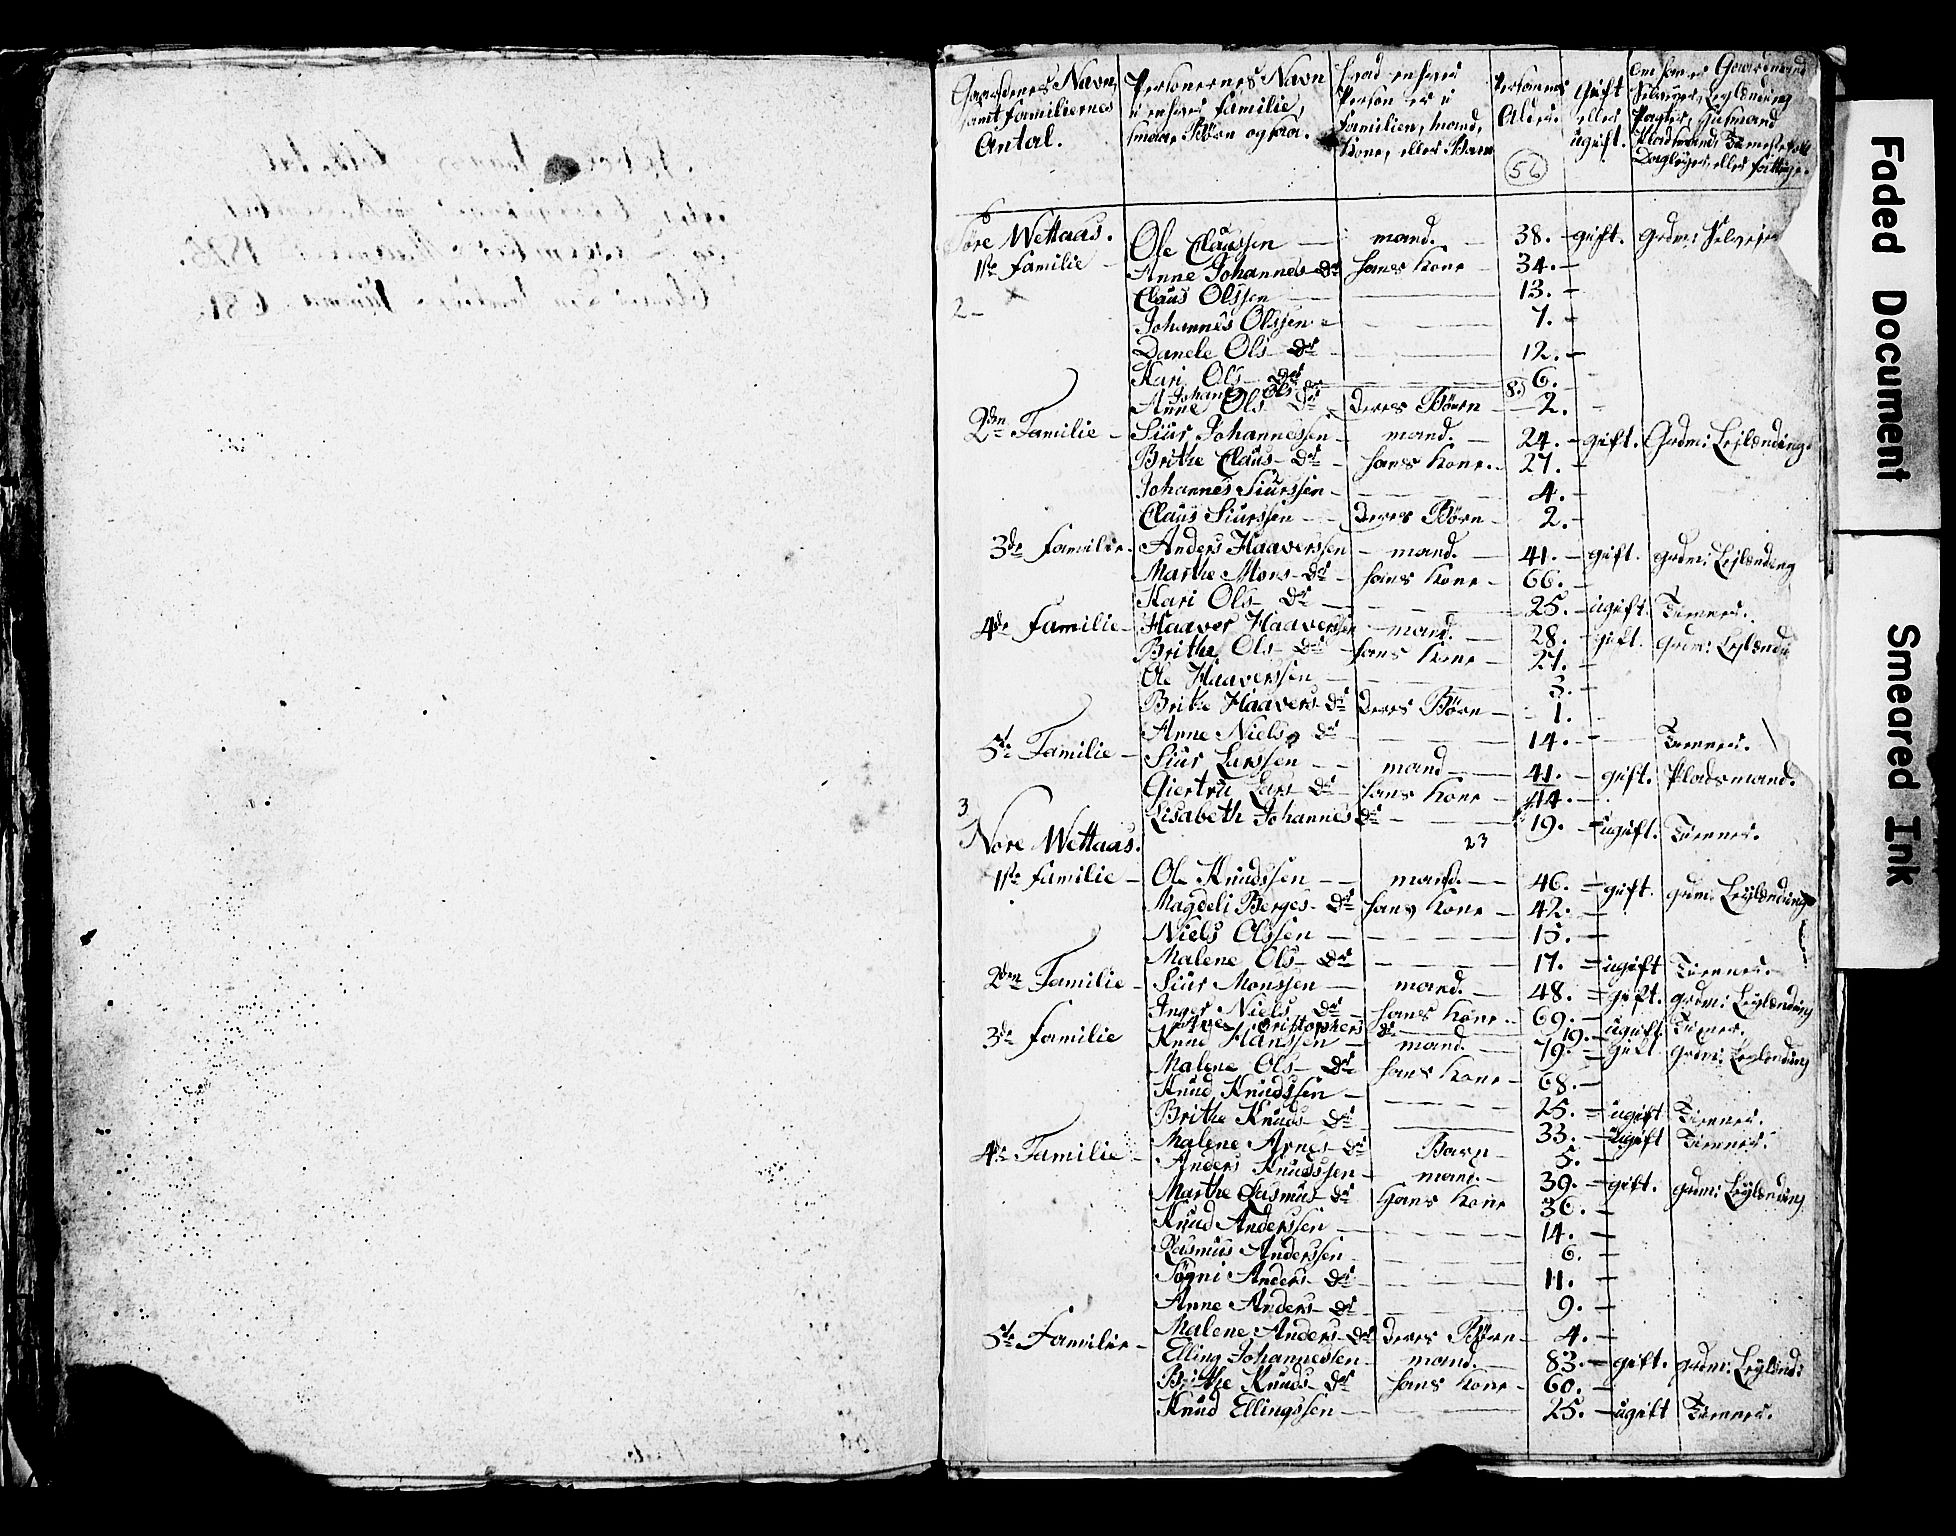 Gaardenes Navn Personernes Navn hvad enhver Personens gift om han er Gaardmand
samt familiernes i enhver familie, Person er i Alder. eller Selveyer, Leylænding
Antal. smaae Børn ogsaa. familien, mand, ugift. Husmand
Kone, eller Barn Pladsmand, Tienestefolk
56 Dagleyer, eller fattige.
Søre Wettaas. Ole Claussen — mand. — 38. — gift. grdm: Selveyer
1ste familie — Anne Johannes Dr hans Kone — 34. —
Claus Olssen — 13. —
2 — Johannes Olssen — 7. —
Danele Ols Dr — 12. —
Kari Ols Dr — 6. —
Johane Ols Dr 8.
Anne Ols Dr Deres Børn — 2. —
2den Familie — Siur Johannessen — mand. — 24. — gift. Grdm: Leylænding.
Brithe Claus Dr — hans Kone. — 27. —
Johannes Siurssen — 4. —
Claus Siurssen — Deres Børn — 2. —
3de familie. Anders Haaverssen — mand. — 41. — gift. grdm: Leylænding
Marthe Mons Dr — hans Kone — 66. —
Kari Ols Dr — 25. — ugift. Tienner.
4de familie — Haaver Haaverssen — mand. — 28. — gift. grdm: Leylænd
Brithe Ols Dr — hans Kone — 27. —
Ole Haaverssen — 3. —
Brithe Haavers Dr Deres Børn — 1. —
Anne Niels Dr — 14. — Tienner.
5te Familie — Siur Larssen — mand — 41. — gift. Pladsmand.
Giertru Lars Dr — hans Kone — 44. —
3 Lisabeth Johannes Dr — 19. — ugift. Tienner.
Nore Wettaas. 23
1ste familie — Ole Knudssen — mand. — 46. — gift. grdm: Leylænding
Magdeli Berges Dr hans Kone — 42. —
Niels Olssen — 15. —
Malene Ols Dr — 17. — ugift Tienner.
2den Familie — Siur Monssen — mand. — 48. — gift. grdm: Leylænding
Inger Niels Dr — hans Kone — 69. —
Cristophers Dr — 19. — ugift. Tiener.
3de familie Knud Hanssen — mand. — 79. — gift. grdm: Leylænding
Malene Ols Dr hans Kone — 68. —
Knud Knudssen — 25. — ugift Tienner.
Brithe Knuds Dr — 33. — ugift Tienner.
Malene Arnes Dr Barn — 5. —
4de Familie — Anders Knudssen — mand. — 39. — gift. grdm: Leylænding
Marthe Rasmus Dr hans Kone 36. —
Knud Anderssen — 14. —
Rasmus Anderssen 6. —
Søgni Anders Dr — 11. —
Anne Anders Dr — 9. —
Malene Anders Dr Deres Børn — 4. —
5te Familie — Elling Johannessen — mand. — 83. — gift. grdm: Leylænd:
Brithe Knuds Dr hans Kone — 60. —
Knud Ellingssen — 25. — ugift Tienner.
Faded Document
Smeared Ink